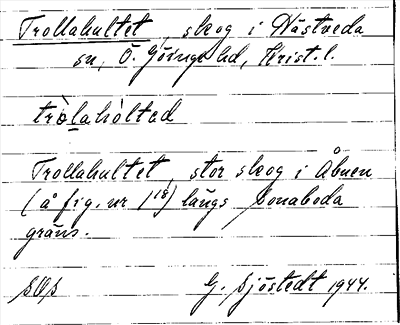 Trollahultet, skog i Hästveda
sn, Ö. Göinge hd, Krist. l.
tròlahòltad
Trollahultet, stor skog i Åbuen
(å fig. nr 1¹¹⁸) längs Sonaboda
gräns.
SOS G. Sjöstedt 1944.